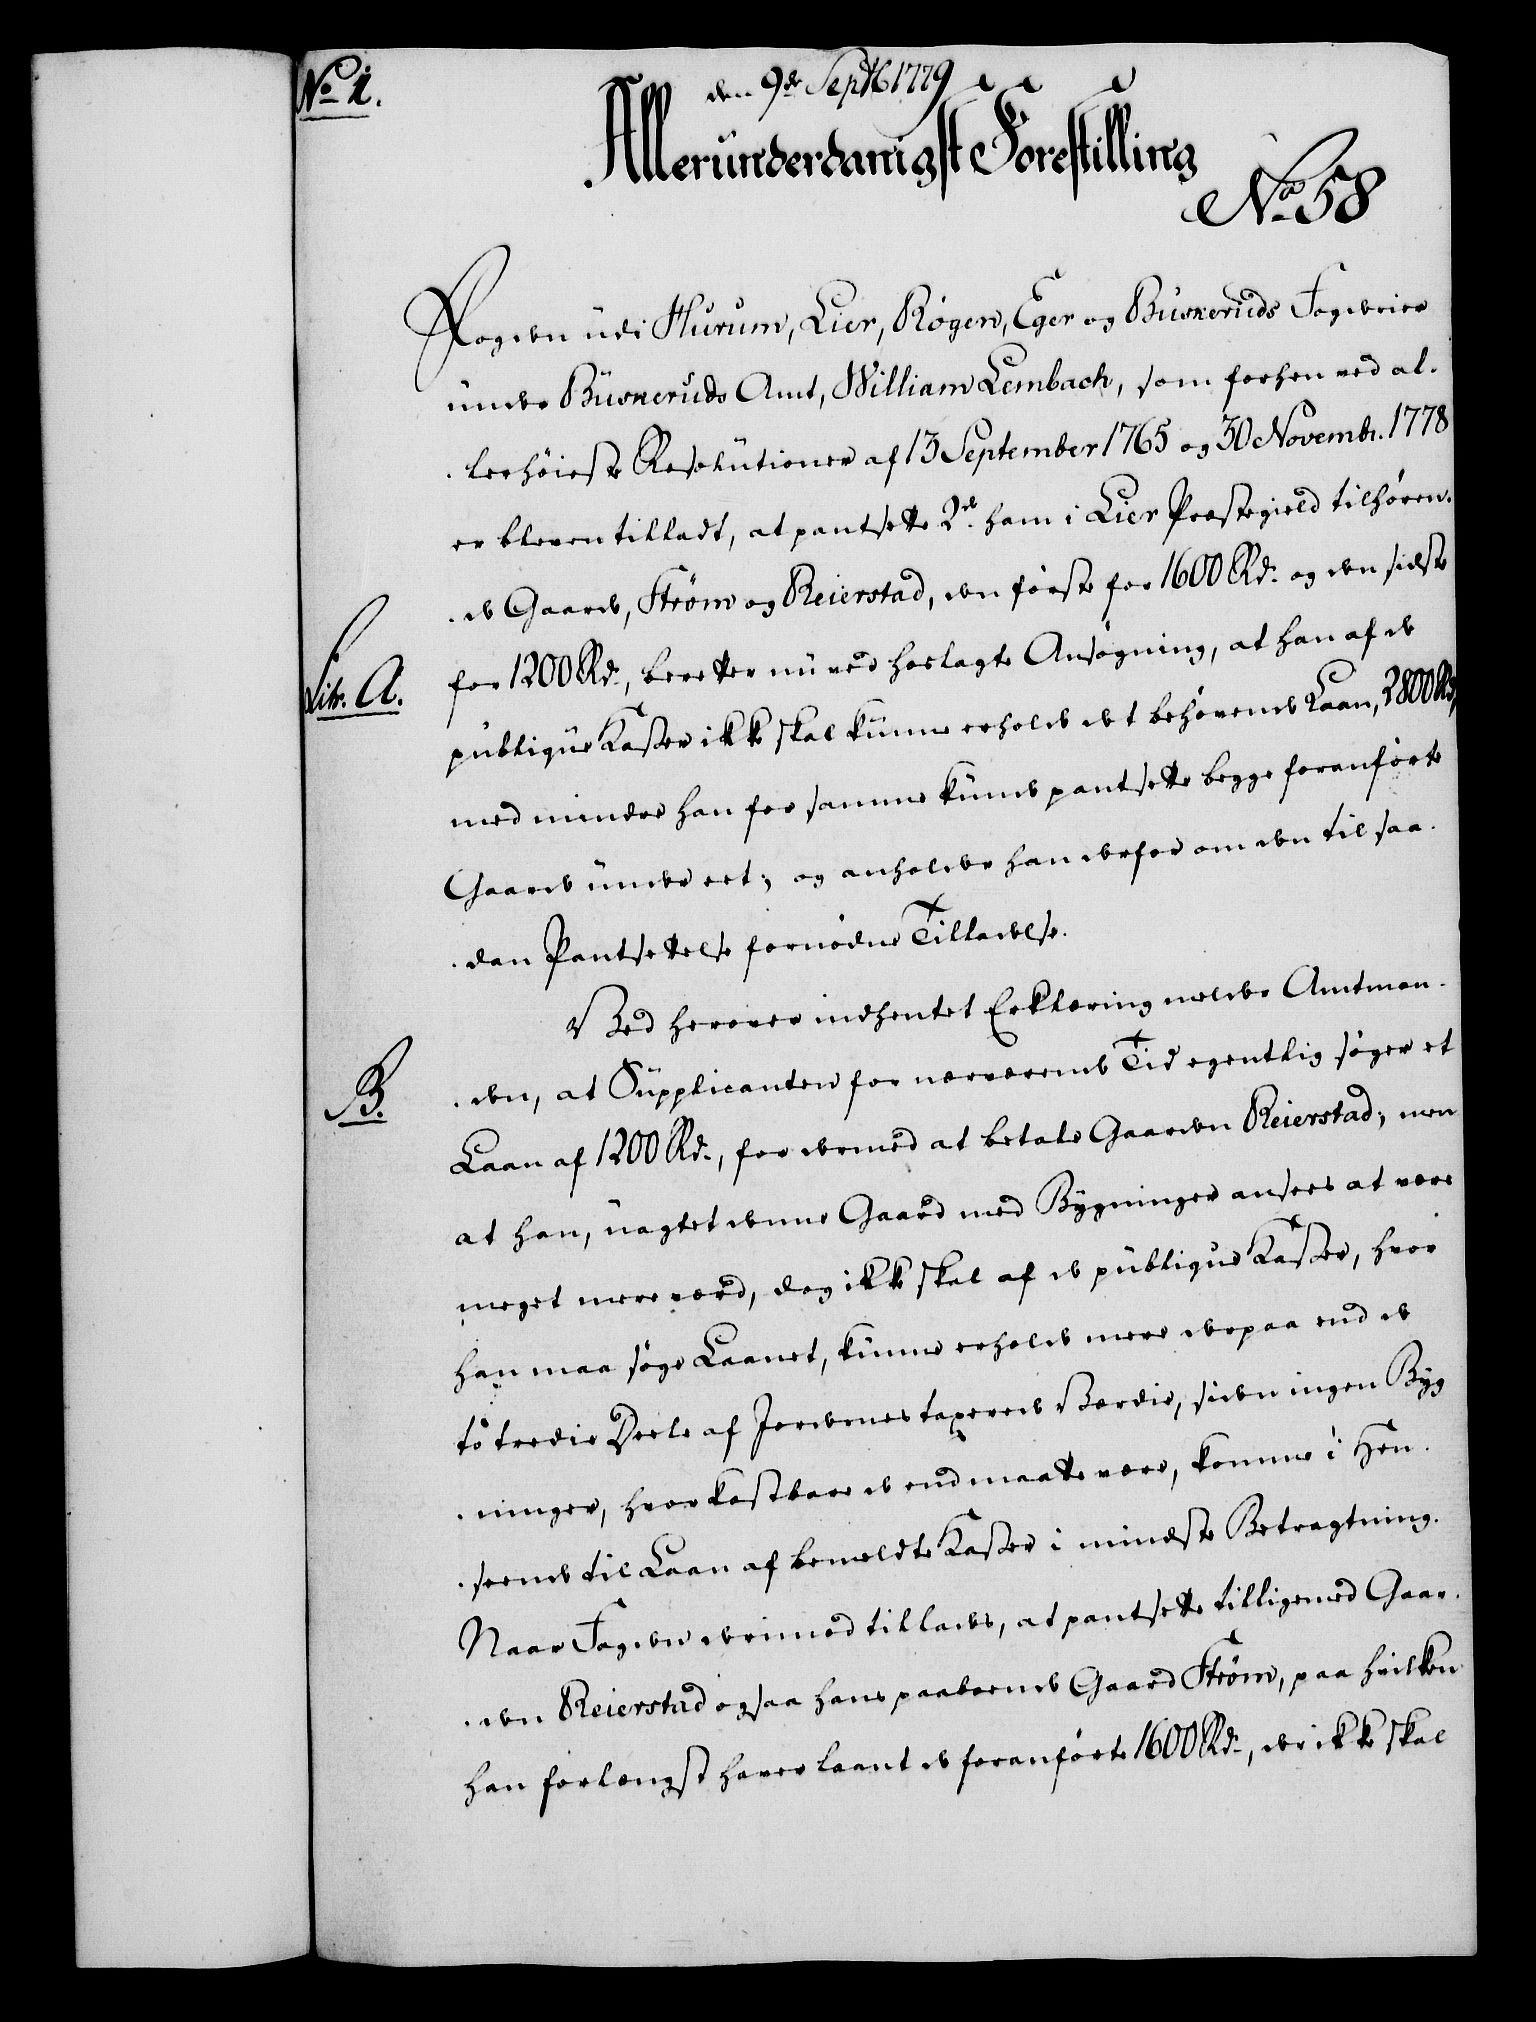 No 1.
den 9de Septb 1779
Allerunderdanigst Forestilling
No 58
Fogden udi Hurum, Lier, Røgen, Eger og Buskeruds Fogderier
under Buskeruds Amt, William Lembach, som forhen ved al-
lerhøieste Resolutioner af 13 September 1765 og 30 Novembr. 1778
er bleven tilladt, at pantsette 2de ham i Lier Præstegield tilhøren-
de Gaarde, Strøm og Reierstad, den første for 1600 Rd. og den sidste
Litr. A.
for 1200 Rd., beretter nu ved hoslagte Ansøgning, at han af de
publique Kasser ikke skal kunne erholde det behøvende Laan, 2800 Rd.,
med mindre han for samme kunde pantsette begge foranførte
Gaarde under eet; og anholder han derfor om den til saa-
dan Pantsettelse fornødne Tilladelse.
Ved herover indhentet Erklæring melder Amtman-
B.
den, at Supplicanten for nærværende Tid egentlig søger et
Laan af 1200 Rd., for dermed at betale Gaarden Reierstad; men
at han, uagtet denne Gaard med Bygninger ansees at være
meget mere værd, dog ikke skal af de publique Kasser, hvor
han maa søge Laanet, kunne erholde mere derpaa end de
to tredie Deele af Jordenes taxerede Værdie, siden ingen Byg
ninger, hvor kostbare de end maatte være, komme i Hen-
seende til Laan af bemeldte Kasser i mindste Betragtning.
Naar Fogden derimod tillades, at pantsette tilligemed Gaar-
den Reierstad ogsaa hans paaboende Gaard Strøm, paa hvilken
han forlængst haver laant de foranførte 1600 Rd., der ikke skal